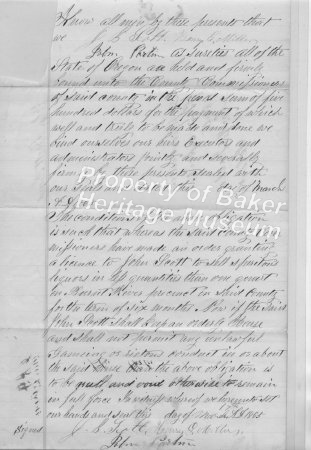 Know all men by these presents that
we J. S. Scott, Henry C. Miller
John Partin as sureties all of the
State of Oregon are held and firmly
bound unto the County Commissioners
of said county in the penal sum of five
hundred dollars for the payment of which
well and truly to be made and done we
bind ourselves our heirs Executors and
administrators jointly and severally
firmly by these presents sealed with
our seals and dated this day of March
A.D.
The condition of the above obligation
is such that whereas the said Com
missioners have made an order granting
a license to John Scott to sell spiritous
liquors in less quantities than one quart
in Precinct said County
for the term of six months. Now if the said
John Scott shall keep an orderly house
and shall not permit any unlawful
Gameing or riotous conduct in or about
the said house then the above obligation is
to be null and void otherwise to remain
in full force In witness whereof we hereunto set
our hands and seals this day of A.D. 1865
Signed J. S. Scott, Henry C. Miller,
John Partin
Property of Baker
Heritage Museum